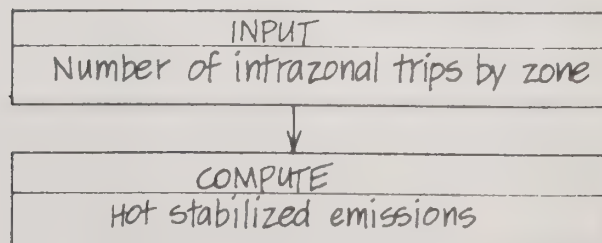 INPUT
Number of intrazonal trips by zone
COMPUTE
Hot stabilized emissions